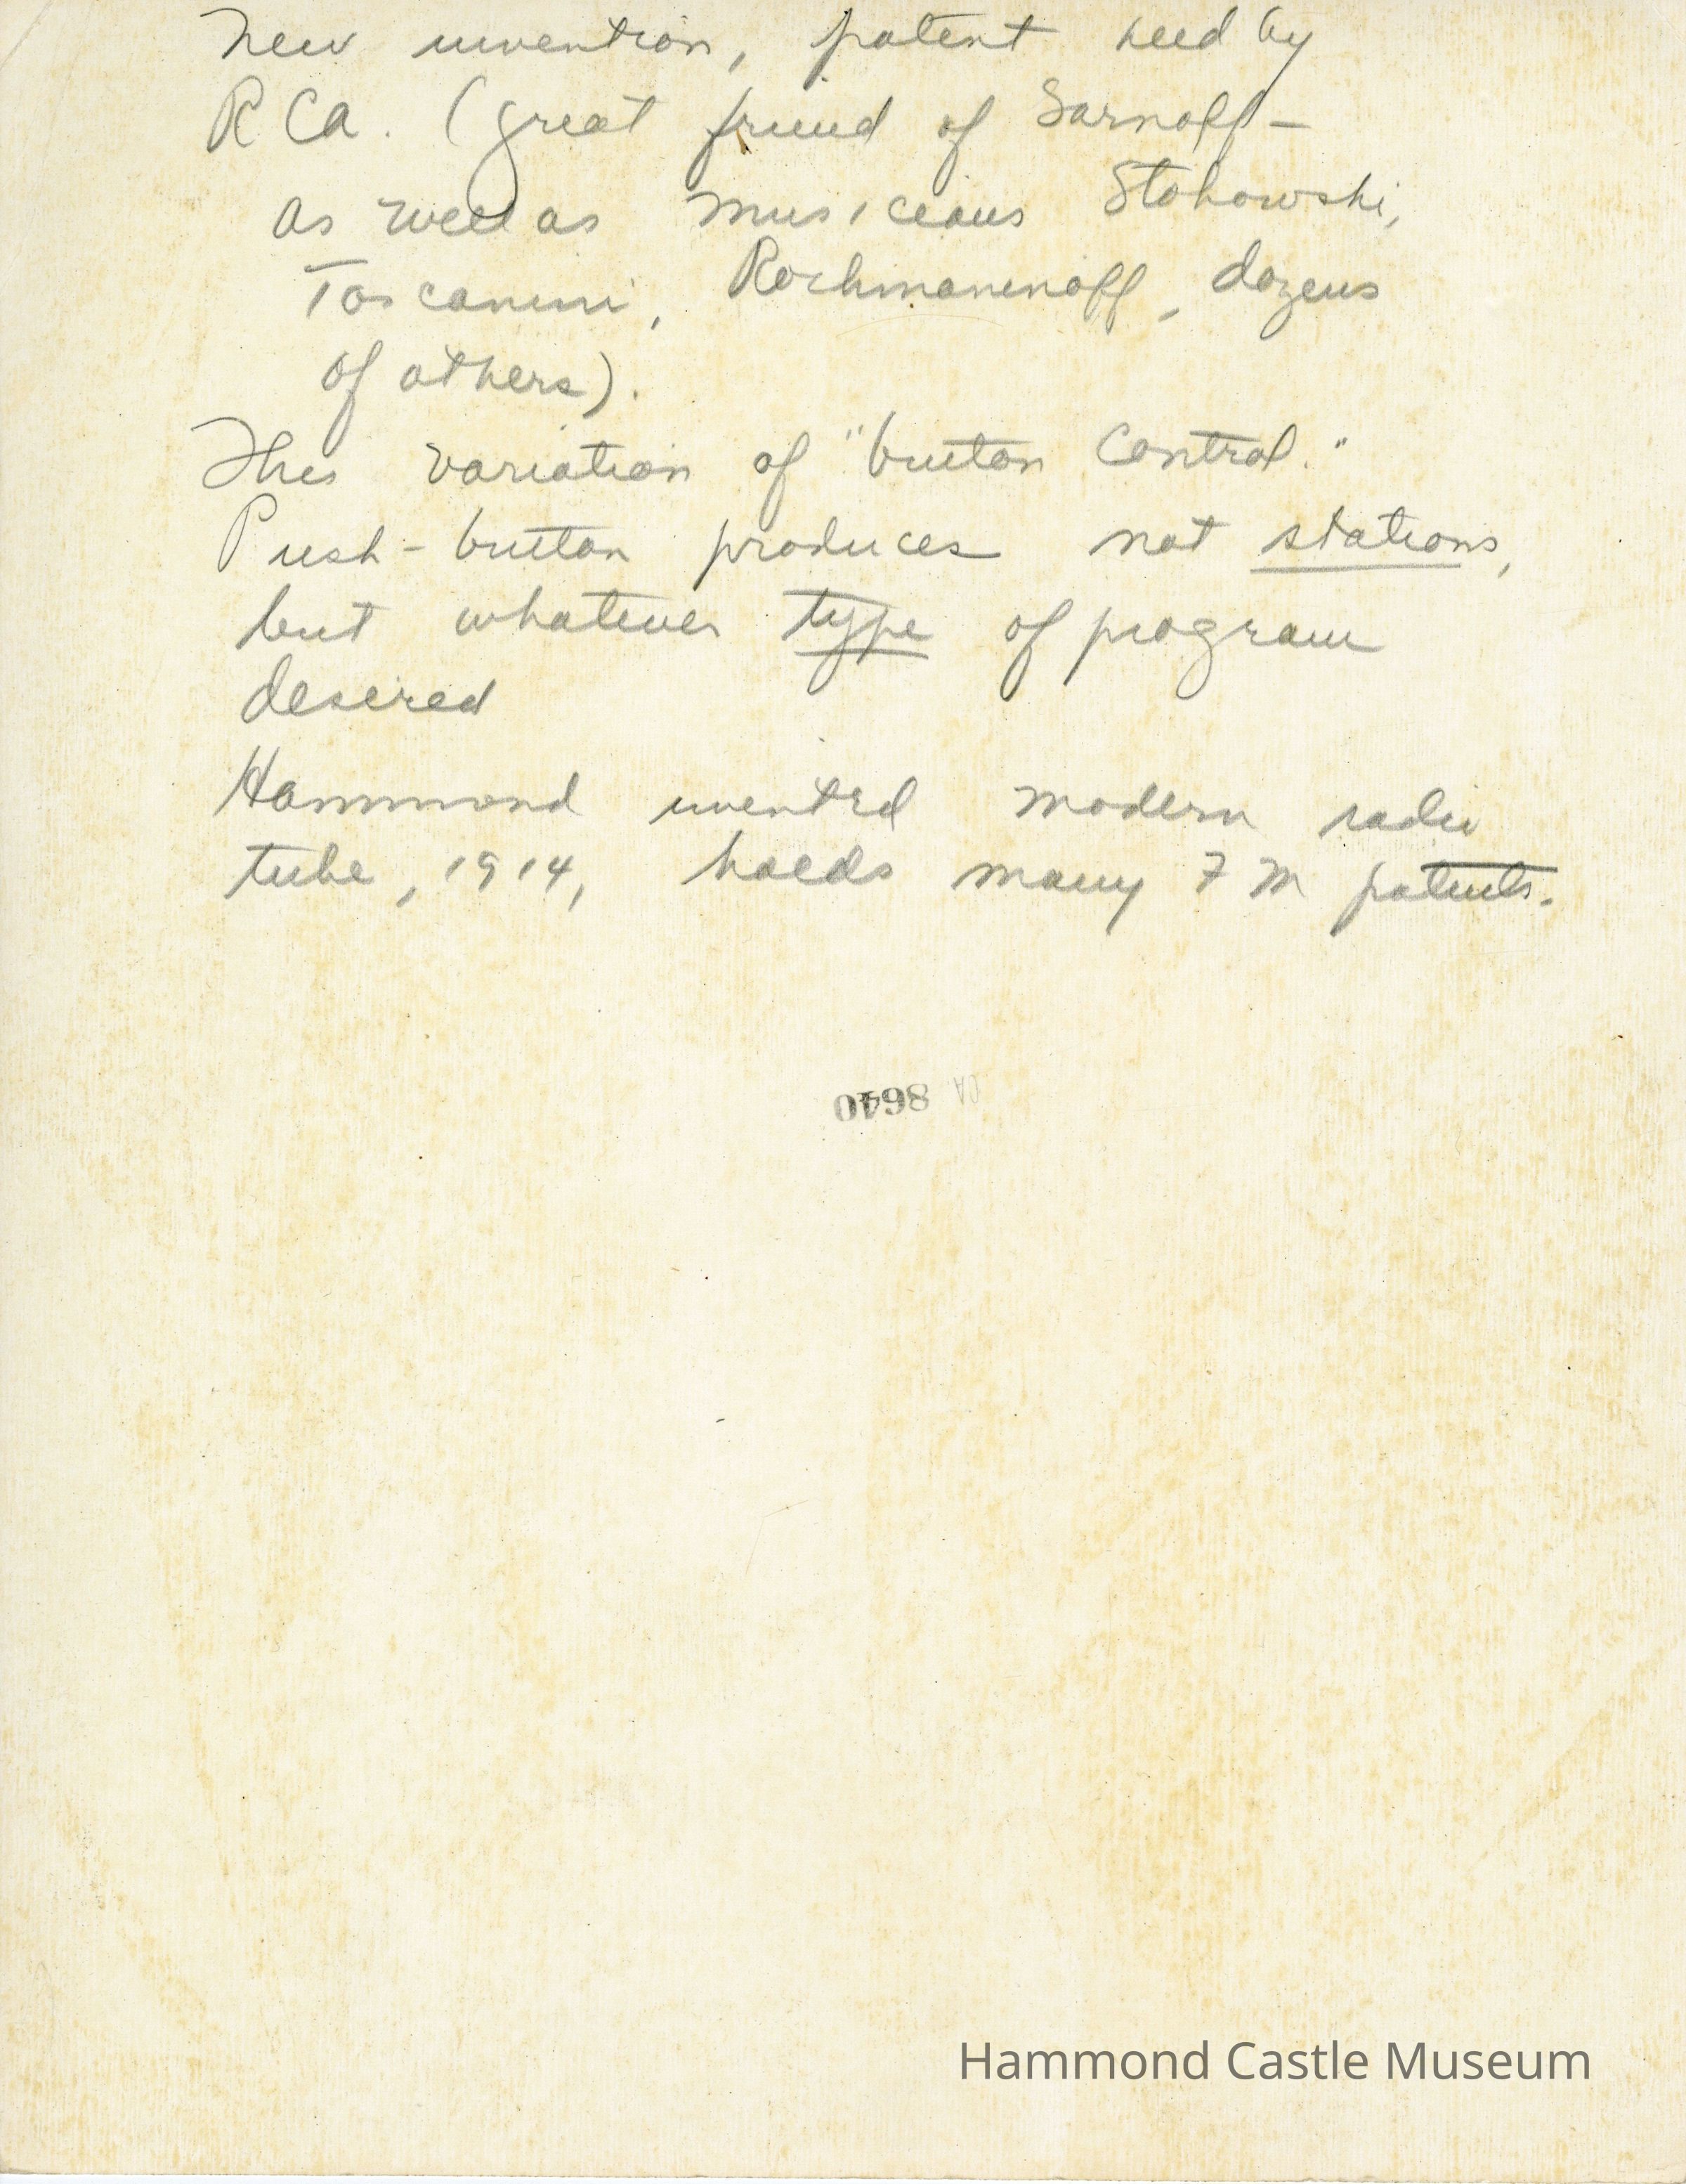 New invention, patent held by
RCA. (great friend of Sarnoff -
as well as musicians Stokowski,
Toscanini, Rochmaninoff, dozens
of others).
This variation of "button control."
Push-button produces not stations,
but whatever type of program
desired
Hammond invented modern radio
tube, 1914, holds many FM patents.
CA 8640
Hammond Castle Museum